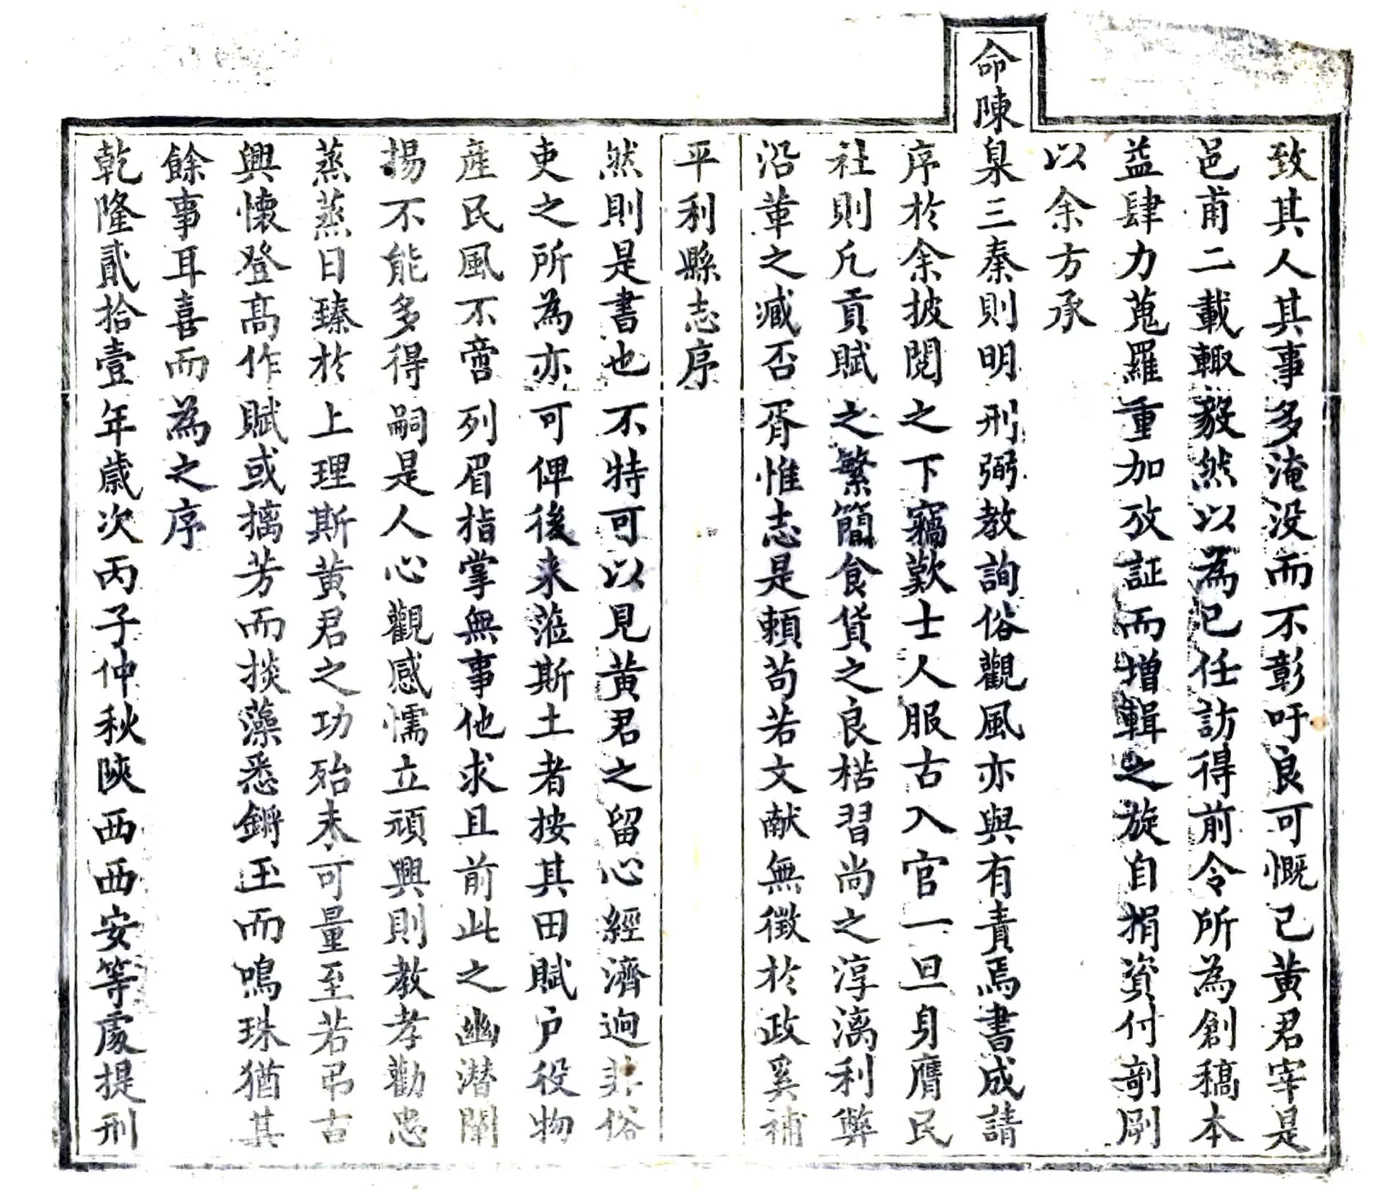 致其人其事多淹没而不彰吁良可慨已黄君宰是
邑甫二載輙毅然以為己任訪得前令所為創稿本
益肆力蒐羅重加攷証而增輯之旋自捐資付剞劂
以余方承
命陳臬三秦則明刑弼教詢俗觀風亦與有責焉書成請
序於余披閱之下竊歎士人服古入官一旦身膺民
社則凡貢賦之繁簡食貨之良楛習尚之淳漓利弊
沿革之臧否胥惟志是頼苟若文献無徵於政奚補
平利縣志序
然則是書也不特可以見黄君之留心經濟逈非俗
吏之所為亦可俾後来蒞斯土者按其田賦户役物
産民風不啻列眉指掌無事他求且前此之幽潜闡
揚不能多得嗣是人心觀感懦立頑興則教孝勸忠
蒸蒸日臻於上理斯黄君之功殆未可量至若弔古
興懷登高作賦或摛芳而掞藻悉鏘玉而鳴珠猶其
餘事耳喜而為之序
乾隆貳拾壹年歲次丙子仲秋陝西西安等處提刑